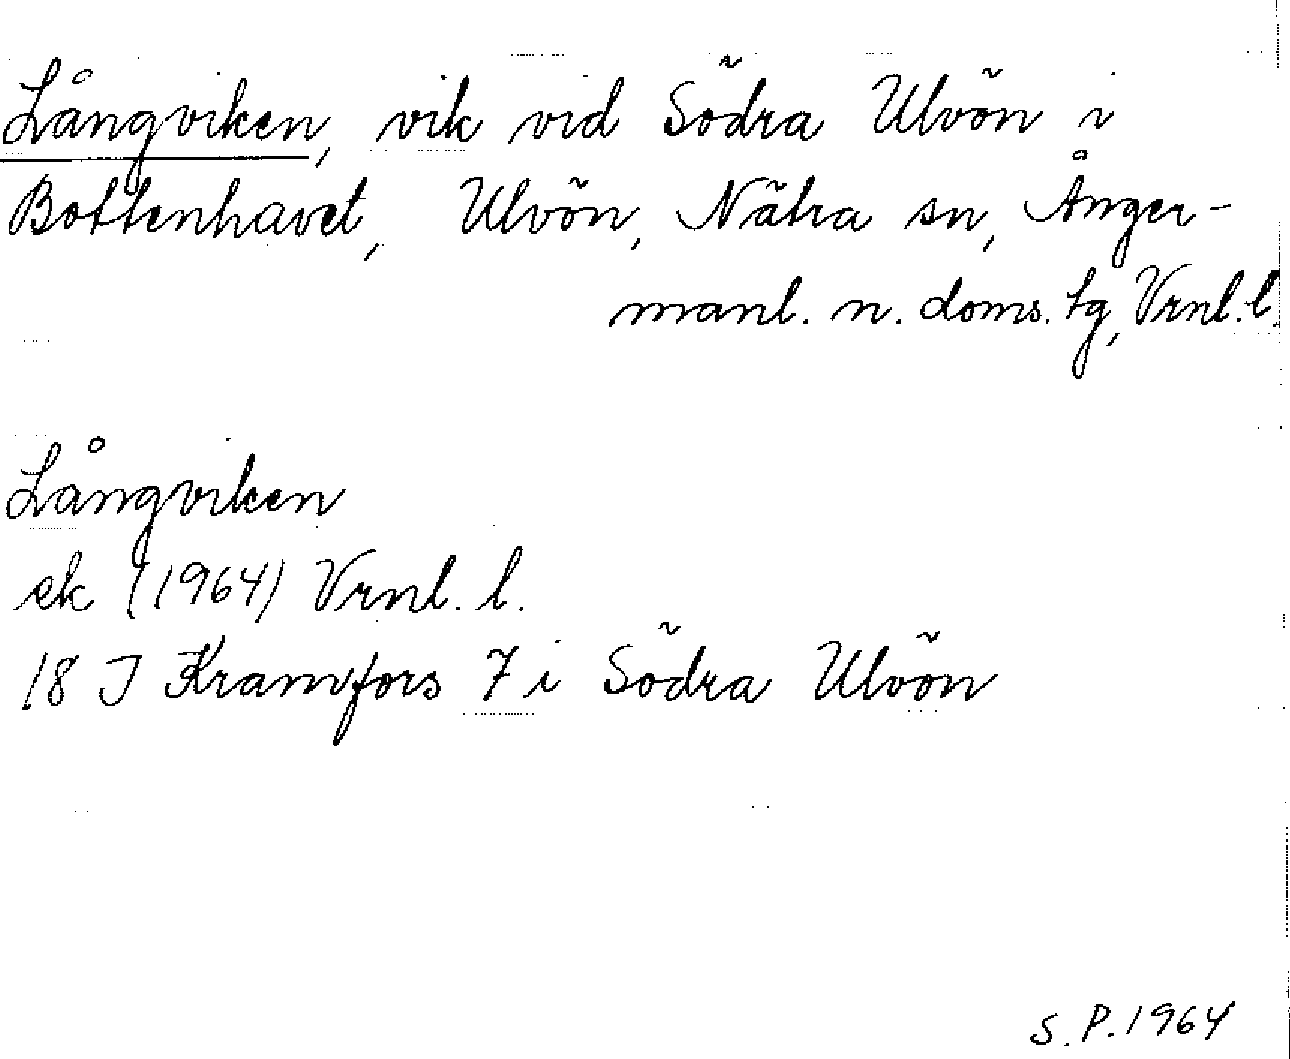 Långviken, vik vid Södra Ulvön i
Bottenhavet, Ulvön, Nätra sn, Ånger-
manl. n. doms. tg, Vrnl. l.
Långviken
ek (1964) Vrnl. l.
18 J Kramfors 7 i Södra Ulvön
S. P. 1964